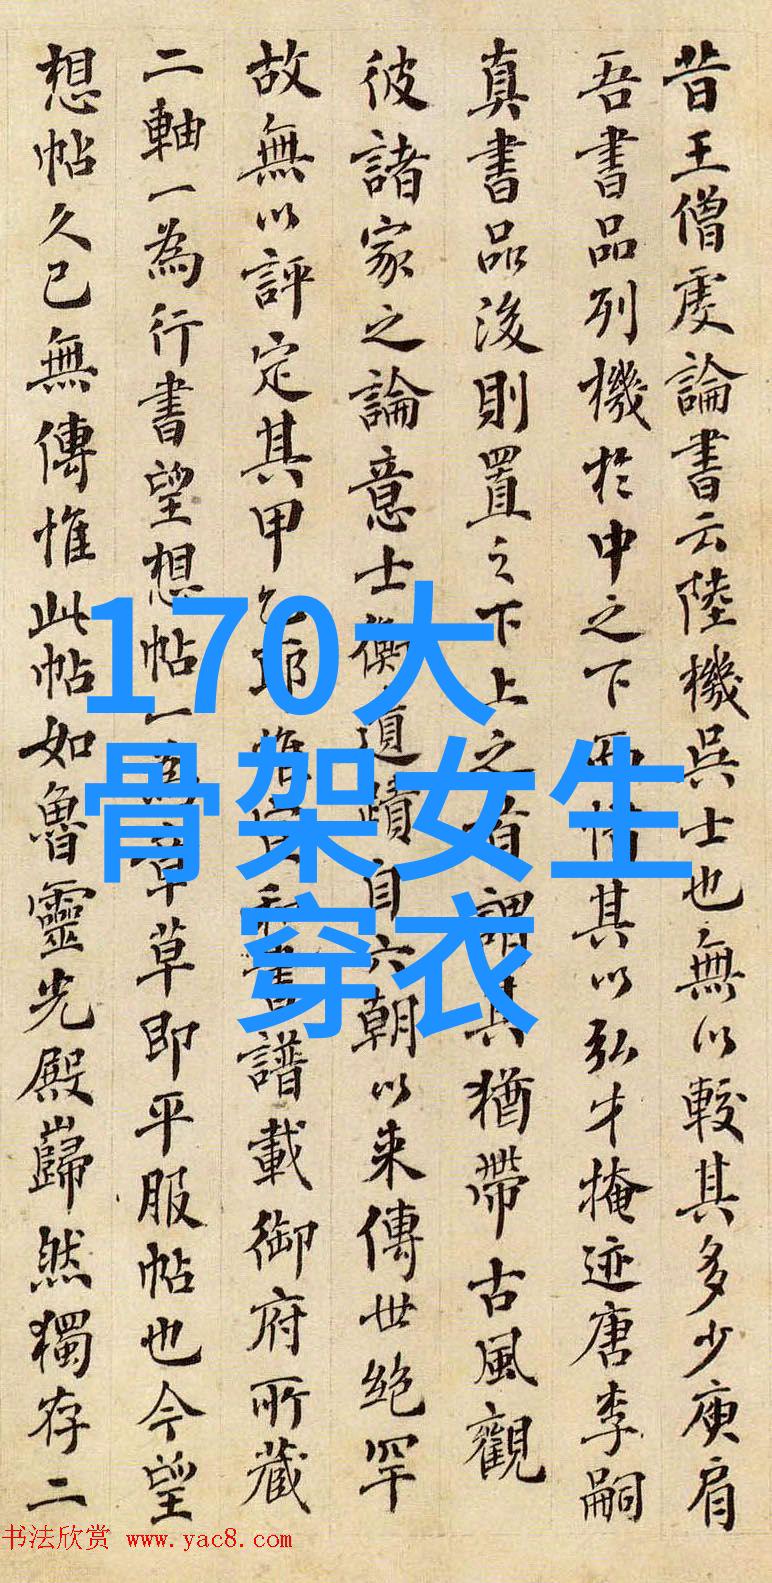 昔王僧虔論書云陸機吳士也無以較其多少庾肩
吾書品列機於中之下而惜其以弘才掩迹唐李嗣
真書品後則置之下上之首謂其猶帶古風觀
彼諸家之論意士衡遺蹟自六朝以来傳世絶罕
故無以評定其甲乙耶惟宣和書譜載御府所藏
二軸一為行書望想帖一為章草即平服帖也今望
想帖久已無傳惟此帖如魯靈光殿巋然獨存二
170大
骨架女生
穿衣
书法欣赏 www.yac8.com